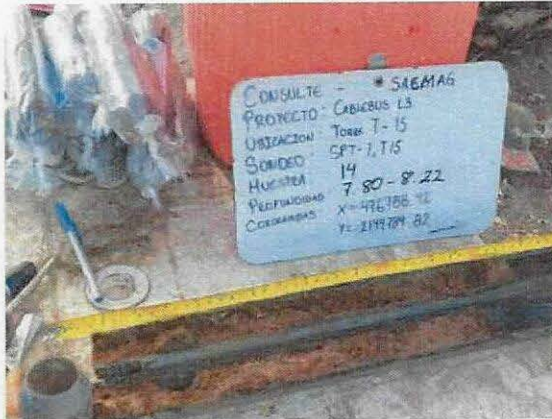 CONSULTE - * SAEMAG
PROYECTO - CABLEBUS L3
UBICACION TORRE T-15
SONDEO - SPT-1, T15
MUESTRA 14
PROFUNDIDAD 7.80 - 8.22
COORDENADAS X=
Y=